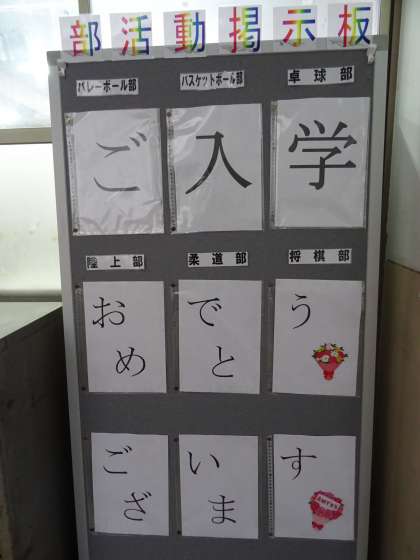 部活動掲示板
バレーボール部 バスケットボール部 卓球部
ご 入 学
陸上部 柔道部 将棋部
おめ でと う
ござ いま す